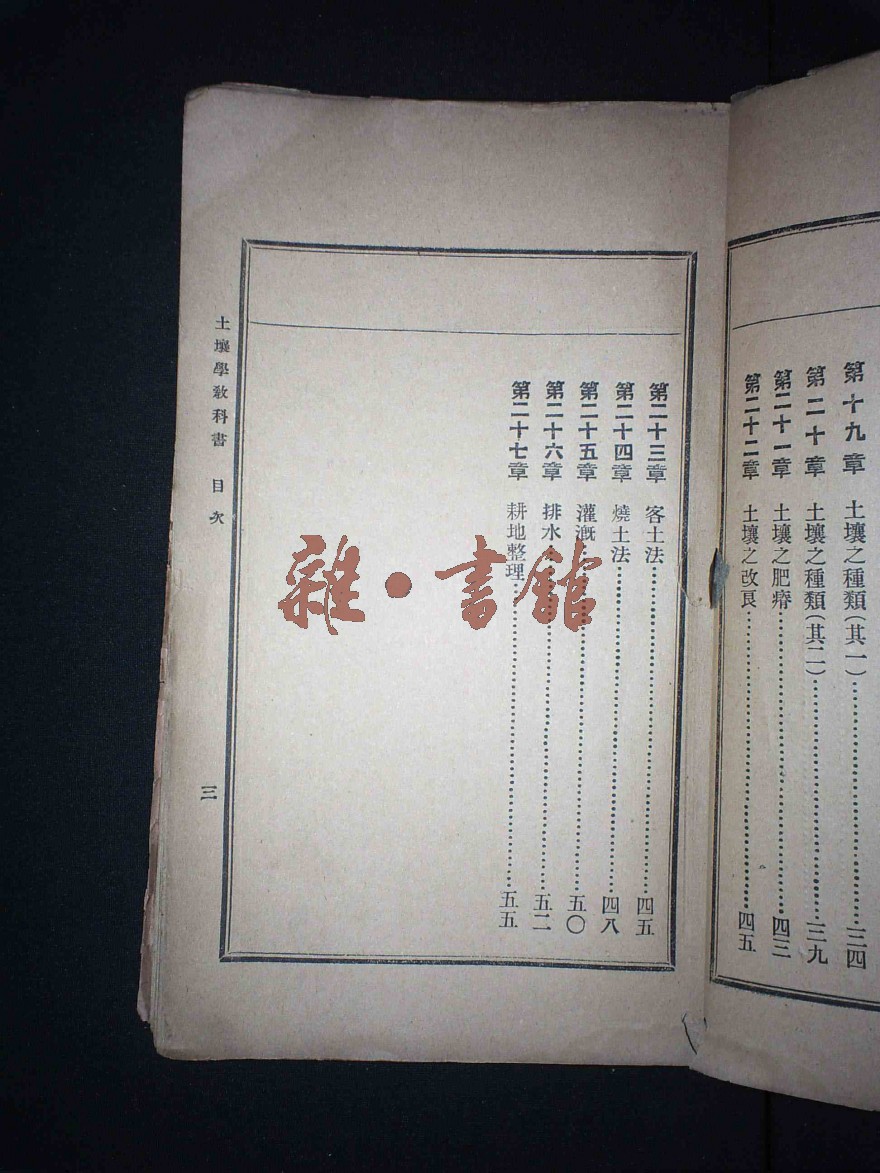 第十九章 土壤之種類(其一)……三四
第二十章 土壤之種類(其二)……三九
第二十一章 土壤之肥瘠……四三
第二十二章 土壤之改良……四五
第二十三章 客土法……四五
第二十四章 燒土法……四八
第二十五章 灌漑……五〇
第二十六章 排水……五二
第二十七章 耕地整理……五五
土壤學敎科書 目次
三
雜·書館